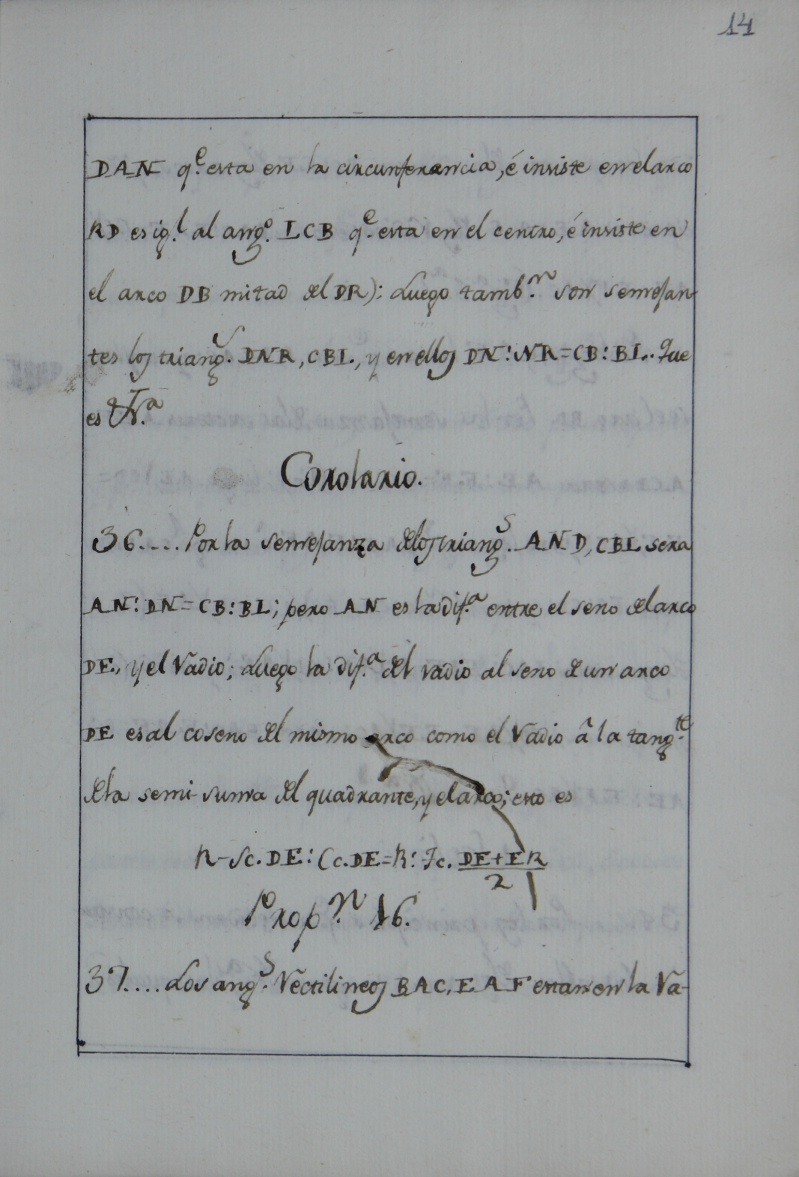 14
DAN q.e esta en la circunferencia, é insiste en el arco
RD es ig.l al ang.o LCB q.e esta en el centro, é insiste en
el arco DB mitad del DR): Luego tamb.n son semejan
tes los triang.s DNR, CBL, y en ellos DN:NR=CB:BL. Que
es &.a
Corolario.
36.... Por la semejanza de los triang.s AND, CBL sera
AN:DN=CB:BL; pero AN es la dif.a entre el seno del arco
DE, y el Radio; Luego la dif.a del radio al seno de un arco
DE es al coseno del mismo arco como el Radio â la tang.te
de la semi-suma del quadrante, y el arco; esto es
R-Sc.DE:Cc.DE=R:Tc. DE+ER
2
Prop.n 16.
37.... Los ang.s Rectilineos BAC, EAF estan en la Ra-